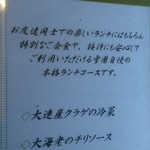 お友達同士での楽しいランチにはもちろん
特別なご会食や、接待にも安心して
ご利用いただける雪園自慢の
本格ランチコースです。
◇大連産クラゲの冷菜
◇大海老のチリソース